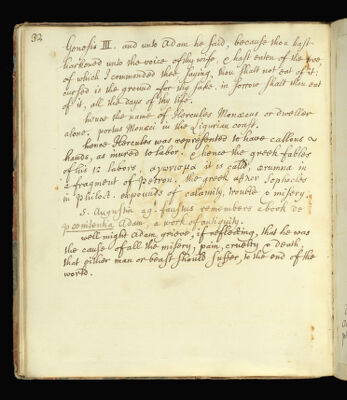 32
Genesis III. and unto Adam he said, because thou hast
harkened unto the voice of thy wife, & hast eaten of the tree,
of which I commanded thee, saying, thou shalt not eat of it;
cursed is the ground for thy sake, in sorrow shalt thou eat
of it, all the days of thy life.
hence the name of Hercules Monæcus or dweller
alone; portus Monæci in the Ligurian coast.
hence Hercules was represented to have callous
hands, as inured to labor. & hence the greek fables
of his 12 labors, it is calld, ærumna in
a fragment of Petron. the greek Sophocles
in Philoct. expounds of calamity, trouble & misery.
S. Augustin ag. faustus remembers a book de
pœnitentia Adam, a work of antiquity.
well might Adam grieve, if reflecting, that he was
the cause of all the misery, pain, cruelty & death,
that either man or beast should suffer, to the end of the
world.